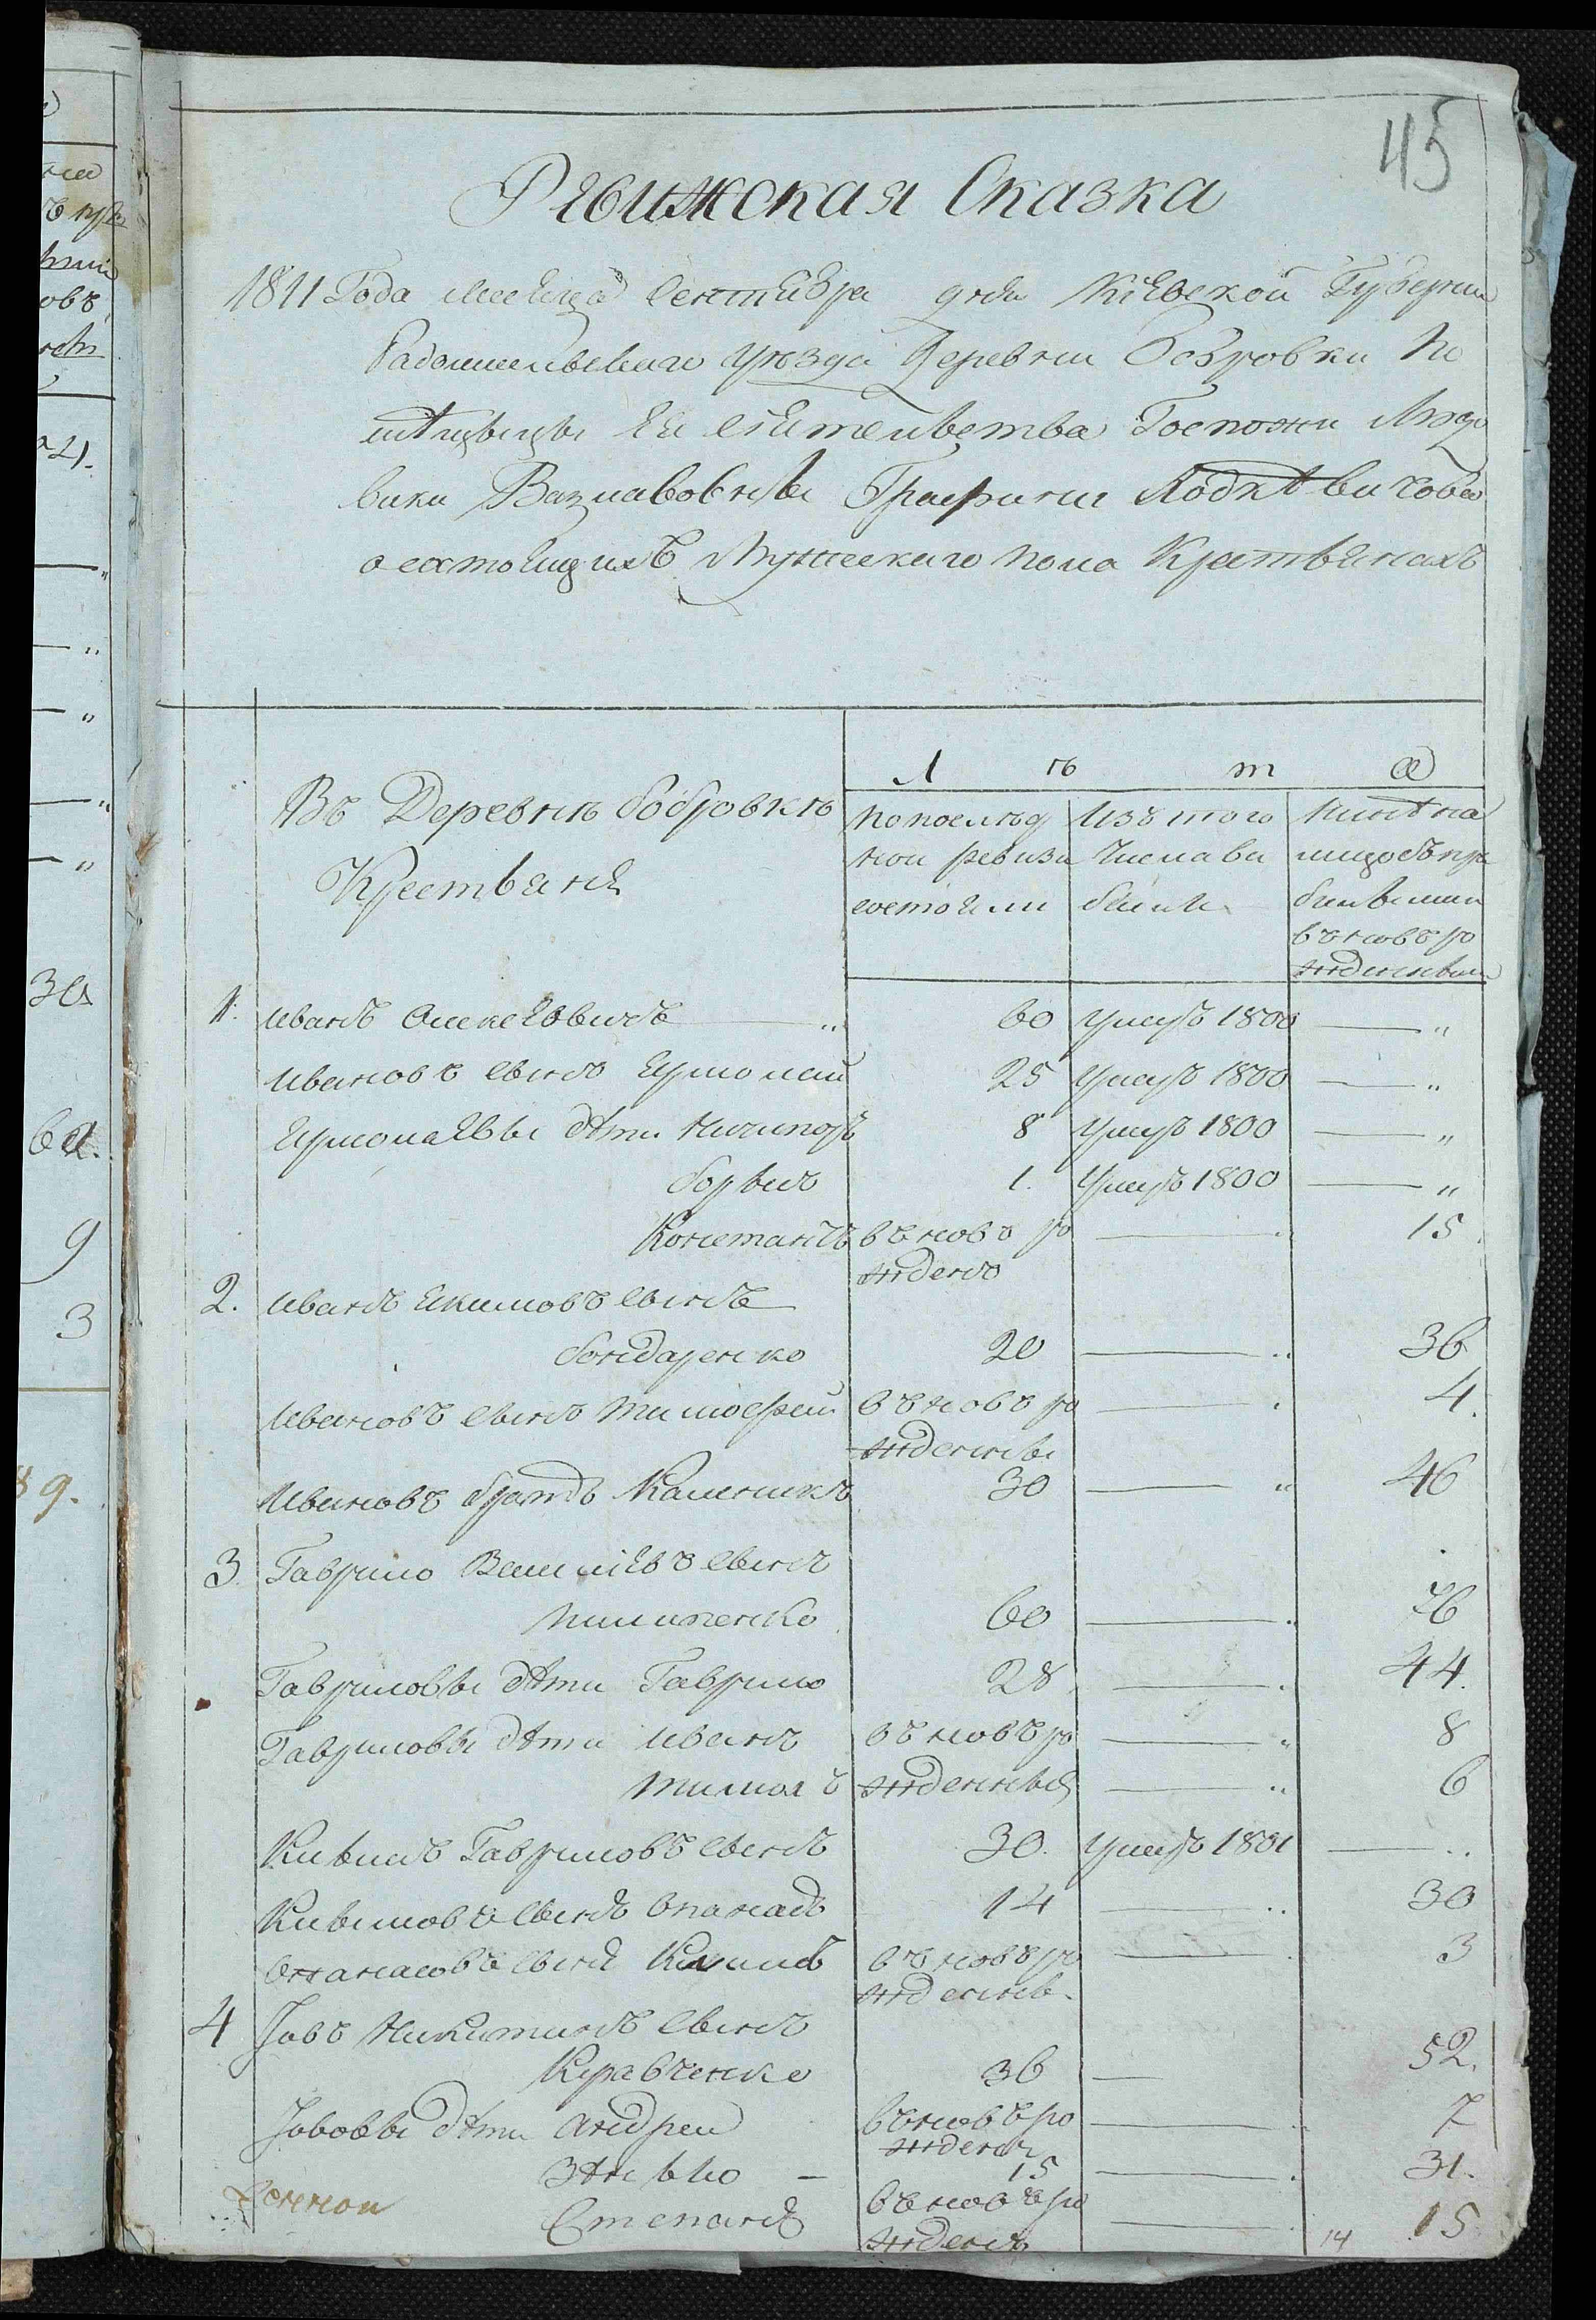 45
Ревижская Сказка
1811 Года месяца Сентября дня Кіевской Губернии
Радомисльскаго уѣзда Деревни Бобровки По
мѣщицы Ея сіятельства Госпожи Людо
вики Вацлавовны Графини Ходкѣвичовой
о состоящихъ Мужескаго пола Крестьянахъ
Въ Деревнѣ бобровкѣ
Крестьяня
Л ѣ т а
по послѣд
ной ревизи
состояли
Изъ того
числа вы
были
Нинѣ на
лицо съ при
бывшими
въновъ ро
жденными
1. Иванъ Алексѣевичъ 60 умеръ 1800 — „
Ивановъ сынъ Ермолай 25 умеръ 1800 — „
Ермолаевы дѣти Ничипоръ 8 умеръ 1800 — „
борысъ 1. умеръ 1800 — „
Констанъ въновъ ро — 15
жденъ
2. Иванъ Екимовъ сынъ
бондаренко 20 — 36
Ивановъ сынъ тимофей въновъ ро — 4.
жденны
Ивановъ братъ Каленикъ 30 — „ 46
3. Гаврило Василіевъ сынъ
пилипенко 60 — 76
Гавриловы дѣти Гаврило 28 — 44.
Гавриловы дѣти Иванъ въновъ ро — „ 8
тимошъ жденныя — 6
Кывимъ Гавриловъ сынъ 30. умеръ 1801 —
Кивимовъ сынъ Опанасъ 14 — 30
Опанасовъ сынъ въновъ ро — 3
жденны.
4 Іовъ Никитинъ сынъ
Кравченко 36 — 52.
Іововы дѣти андреи въновъ ро — 7
жденъ
Зѣнько — 15 — 31.
Степанъ въновъ ро — 15
жденъ
14